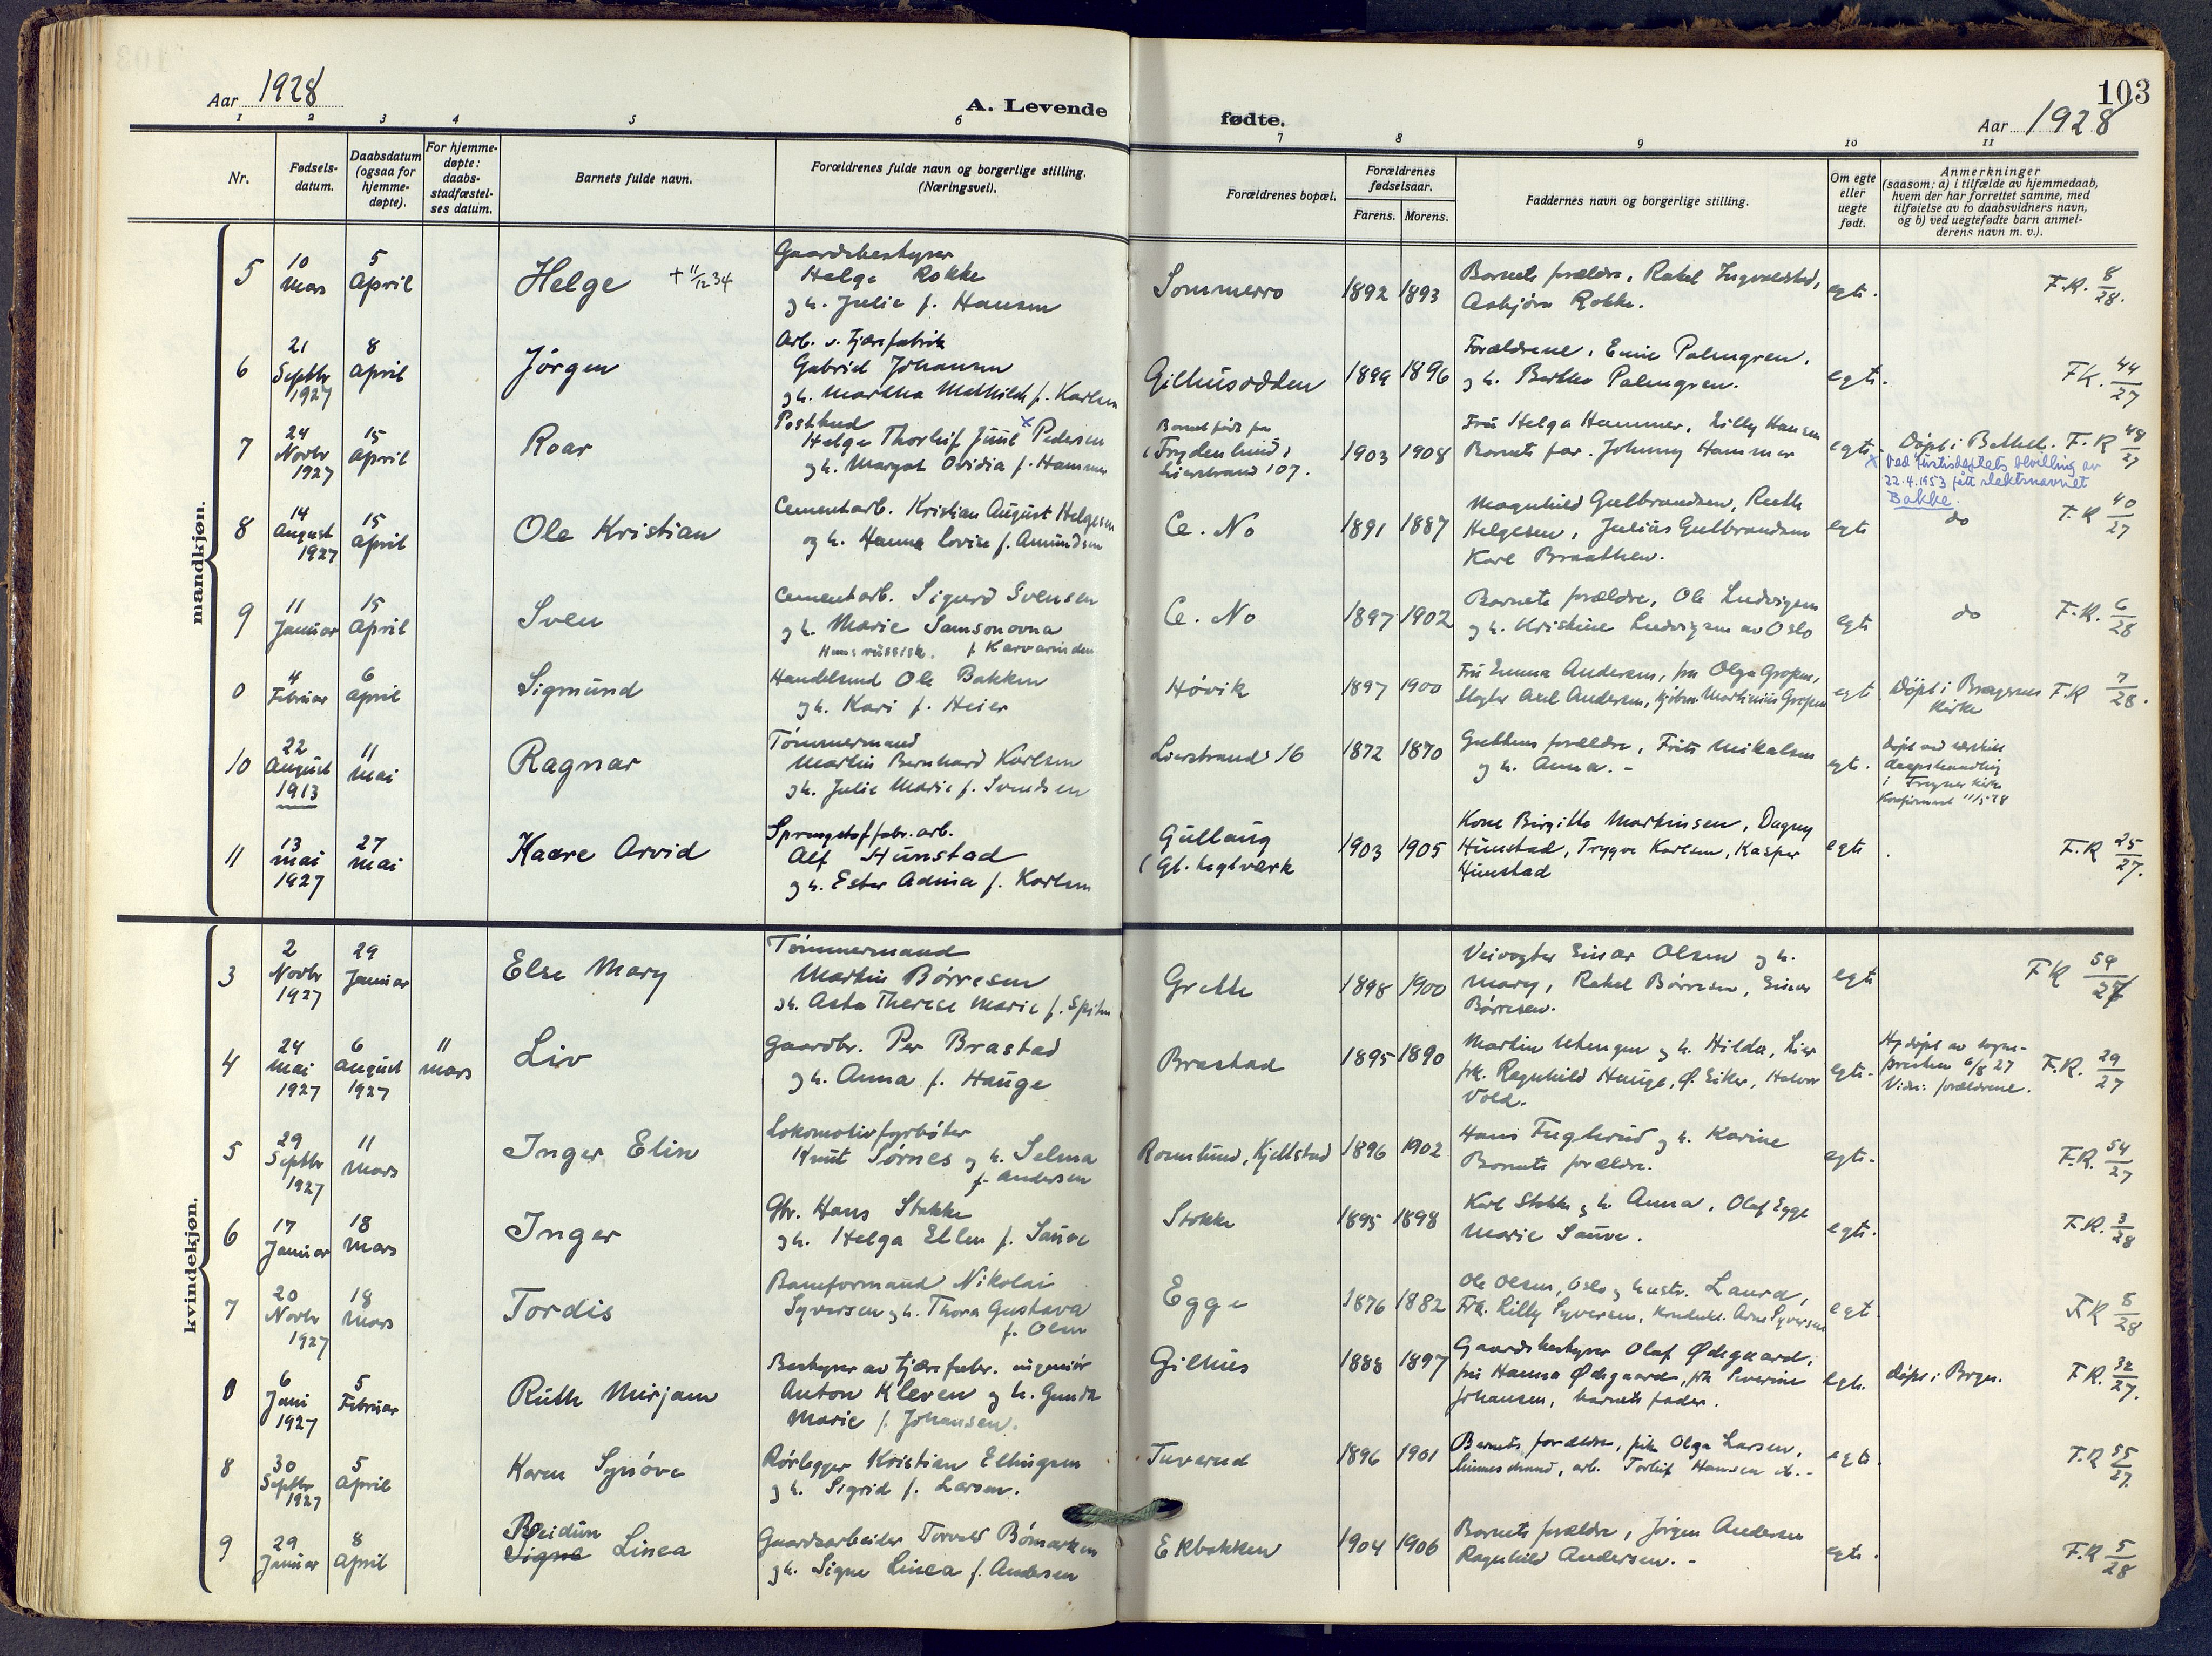 103
Aar 1928
A. Levende
fødte.
Aar 1928
1 2 3 4 5 6 7 8 9 10 11
Nr.
Fødsels-
datum.
Daabsdatum
(ogsaa for
hjemme-
døpte).
For hjemme-
døpte:
daabs-
stadfæstel-
ses datum.
Barnets fulde navn.
Forældrenes fulde navn og borgerlige stilling.
(Næringsvei).
Forældrenes bopæl.
Forældrenes
fødselsaar.
Farens. Morens.
Faddernes navn og borgerlige stilling.
Om egte
eller
uegte
født.
Anmerkninger
(saasom: a) i tilfælde av hjemmedaab,
hvem der har forrettet samme, med
tilføielse av to daabsvidners navn,
og b) ved uegtefødte barn anmel-
derens navn m. v.).
mandkjøn.
5
10
Mars
5
April
Helge + 11/12 34
Gaardsbestyrer
Helge Rokke
og h. Julie f. Hansen
Sommerro
1892 1893
Barnets forældre, Rakel Ingvaldstad,
Asbjørn Rokke.
egte.
F.R. 8/28.
6
21
Septbr
1927
8
April
Jørgen
Arb. v. Tjærefabrik
Gabriel Johansen
og h. Martha Mathilde f. Karlsen
Gilhusodden
1899 1896
Forældrene, Emil Palmgren,
og h. Bertha Palmgren.
egte.
F.R. 44/27
7
24
Novbr
1927
15
April
Roar
Postbud
Helge Thorleif Juul x Pedersen
og h. Margot Ovidia f. Hammer
Barnet født paa
(Frydenlund)
Lierstrand 107.
1903 1908
Fru Helga Hammer, Lilly Hansen
Barnets far. Johnny Hammer
egte.
Døpt i Bethel. F.R 48/27
x Ved Justisdeptets bevilling av
22.4.1953 fått slektsnavnet
Bakke.
8
14
August
1927
15
April
Ole Kristian
Cementarb. Kristian August Helgesen
og h. Hanna Lovise f. Amundsen
Ce. No
1891 1887
Magnhild Gulbrandsen, Ruth
Helgesen, Julius Gulbrandsen
Karl Braathen.
egte
do
F.R 40/27
9
11
Januar
15
April
Sven
Cementarb. Sigurd Svensen
og h. Marie Samsonovna
Hun russisk. f.
Ce. No
1897 1902
Barnets forældre, Ole Ludvigsen
og h. Kristine Ludvigsen av Oslo
egte
do
F.R. 6/28
0
4
Februar
6
April
Sigmund
Handelsmd Ole Bakken
og h. Kari f. Heier
Høvik
1897 1900
Fru Emma Andersen, fru Olga Gropen,
Slagter Axel Andersen, kjøbm. Martinius Gropen
egte
Døpt i Bragernes
Kirke
F.R 7/28.
10
22
August
1913
11
Mai
Ragnar
Tømmermand
Martin Bernhard Karlsen
og h. Julie Marie f. Svendsen
Lierstrand 16
1872 1870
Guttens forældre, Frits Mikalsen
og h. Anna. -
egt.
Døpt ved særskilt
daapshandling
i Frogner kirke
Konfirmert 11/5 28
11
13
Mai
1927
27
Mai
Kaare Arvid
Sprengstoffabr. arb.
Alf Hunstad
og h. Ester Adina f. Karlsen
Gullaug
(Gl. teglverk
1903 1905
Kone Birgitte Martinsen, Dagny
Hunstad, Trygve Karlsen, Kasper
Hunstad
egte.
F.R 25/27.
kvindekjøn.
3
2
Novbr
1927
29
Januar
Else Mary
Tømmermand
Martin Børresen
og h. Asta Therese Marie f. Spiten
Grette
1898 1900
Veivogter Einar Olsen og h.
Mary, Rakel Børresen, Einar
Børresen.
egte
F.R 59/27
4
24
Mai
1927
6
August
1927
11
Mars
Liv
Gaardbr. Per Brastad
og h. Anna f. Hauge
Brastad
1895 1890
Martin Utengen og h. Hilda, Lier
frk. Ragnhild Hauge, Ø. Eiker, Halvor
Vold.
egte.
Hj.døpt av sogne-
presten 6/8 27
Vidn: forældrene.
F.R. 29/27
5
29
Septbr
1927
11
Mars
Inger Elin
Lokomotivfyrbøter
Knut Sørnes og h. Selma
f. Andersen
Romslund, Kjellstad
1896 1902
Hans Fuglerud og h. Karine
Barnets forældre.
egte.
F.R. 54/27
6
17
Januar
18
Mars
Inger
Gbr. Hans Stokke
og h. Helga Ellen f. Sauve
Stokke
1895 1898
Karl Stokke og h. Anna, Olaf Egge
Marie Sauve.
egte.
F.R. 3/28
7
20
Novbr
1927
18
Mars
Tordis
Baneformand Nikolai
Syversen og h. Thora Gustava
f. Olsen
Egge
1876 1882
Ole Olsen, Oslo og hustr. Laura,
Frk. Lilly Syversen, Arne Syversen
egt.
F.R 8/28
0
6
Juni
1927
5
Februar
Ruth Mirjam
Bestyrer av tjærefabr. ingeniør
Anton Kleven og h. Gunda
Marie f. Johansen.
Gilhus
1888 1897
Gaardsbestyrer Olaf Ødegaard,
fru Hanna Ødegaard, frk Severine
Johansen, barnets fader.
egte.
Døpt i Brgn.
F.R. 32/27.
8
30
Septbr
1927
5
April
Karen Synøve
Rørlegger Kristian Ellingsen
og h. Sigrid f. Larsen.
Tuverud
1896 1901
Barnets forældre, frk Olga Larsen,
arb. Torleif Hansen
egte.
F.R 55/27.
9
29
Januar
8
April
Reidun
Signe Linea
Gaardsarbeider Torvald Bømarken
og h. Signe Linea f. Andersen
Ekbakken
1904 1906
Barnets forældre, Jørgen Andersen
Ragnhild Andersen. -
egte.
F.R 5/28